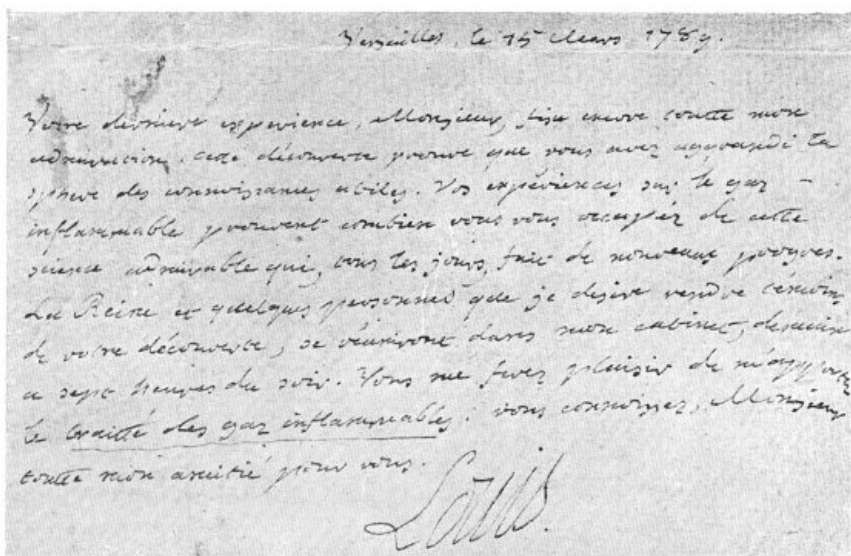 Versailles, le 15 Mars 1789.
Votre derniere experience, Monsieur, fixe encore toutte mon
admiracion. cete découverte prouve que vous avez aggrandi la
sphere des connoissances utiles. Vos expériences sur le gaz
inflammable prouvent combien vous vous occupéz de cette
science admirable qui, tous les jours, fait de nouveaux progres.
La Reine et quelques personnes que je desire rendre temoins
de votre découverte, se réuniront dans mon cabinet, demain
a sept heures du soir. Vous me ferez plaisir de m'apporter
le traitté des gaz inflammables: vous connoissez, Monsieur
toutte mon amitié pour vous.
Louis.